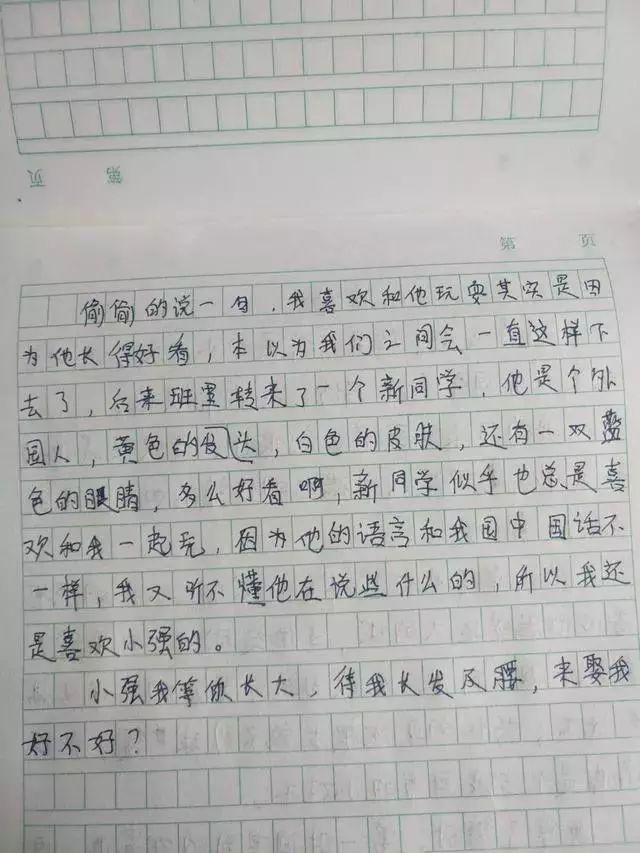 页 第
第 页
偷偷的说一句，我喜欢和他玩耍其实是因
为他长得好看，本以为我们之间会一直这样下
去了，后来班里转来了一个新同学，他是个外
国人，黄色的皮头，白色的皮肤，还有一双蓝
色的眼睛，多么好看啊，新同学似乎也总是喜
欢和我一起玩，因为他的语言和我国中国话不
一样，我又听不懂他在说些什么的，所以我还
是喜欢小强的。
小强我等你长大，待我长发及腰，来娶我
好不好？